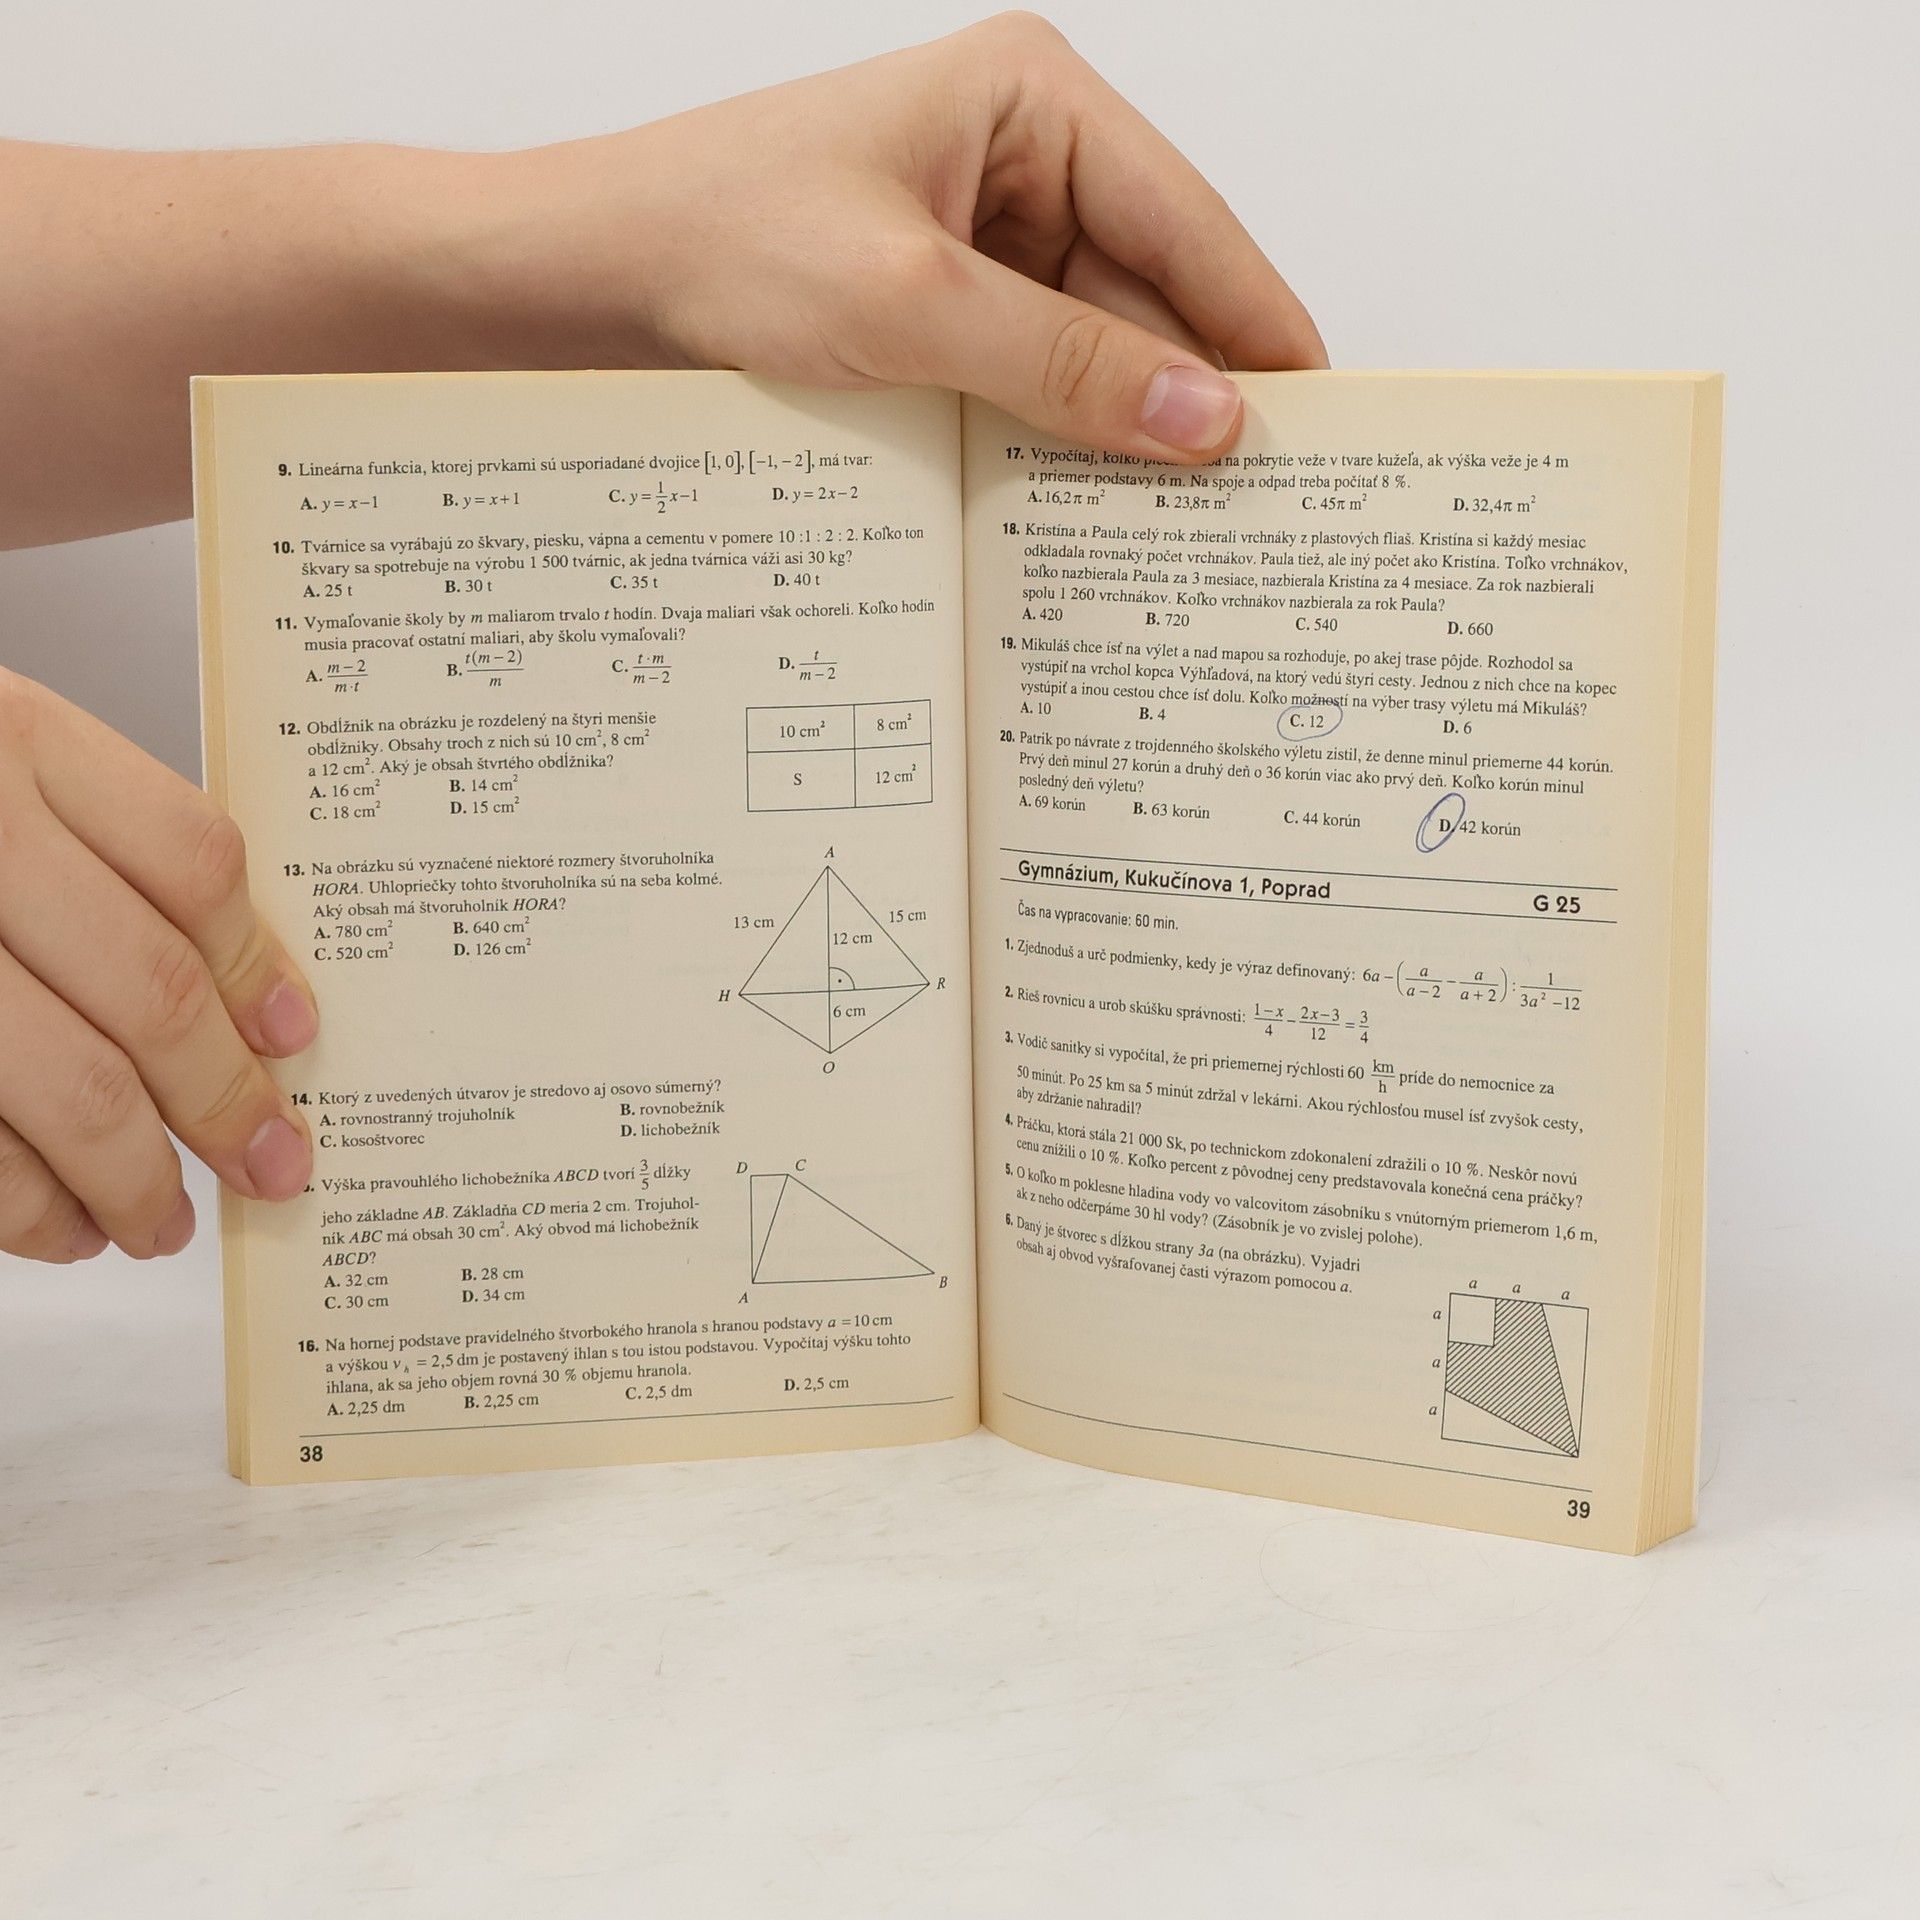 9. Lineárna funkcia, ktorej prvkami sú usporiadané dvojice [1, 0], [−1, −2], má tvar:
A. y = x−1 B. y = x+1 C. y = 1/2 x−1 D. y = 2x−2
10. Tvárnice sa vyrábajú zo škvary, piesku, vápna a cementu v pomere 10 :1 : 2 : 2. Koľko ton
škvary sa spotrebuje na výrobu 1 500 tvárnic, ak jedna tvárnica váži asi 30 kg?
A. 25 t B. 30 t C. 35 t D. 40 t
11. Vymaľovanie školy by m maliarom trvalo t hodín. Dvaja maliari však ochoreli. Koľko hodín
musia pracovať ostatní maliari, aby školu vymaľovali?
A. (m − 2)/(m·t) B. t(m − 2)/m C. (t · m)/(m − 2) D. t/(m − 2)
12. Obdĺžnik na obrázku je rozdelený na štyri menšie
obdĺžniky. Obsahy troch z nich sú 10 cm², 8 cm²
a 12 cm². Aký je obsah štvrtého obdĺžnika?
A. 16 cm² B. 14 cm²
C. 18 cm² D. 15 cm²
10 cm² 8 cm²
S 12 cm²
13. Na obrázku sú vyznačené niektoré rozmery štvoruholníka
HORA. Uhlopriečky tohto štvoruholníka sú na seba kolmé.
Aký obsah má štvoruholník HORA?
A. 780 cm² B. 640 cm²
C. 520 cm² D. 126 cm²
A
13 cm 15 cm
12 cm
H R
6 cm
O
14. Ktorý z uvedených útvarov je stredovo aj osovo súmerný?
A. rovnostranný trojuholník B. rovnobežník
C. kosoštvorec D. lichobežník
Výška pravouhlého lichobežníka ABCD tvorí 3/5 dĺžky
jeho základne AB. Základňa CD meria 2 cm. Trojuhol-
ník ABC má obsah 30 cm². Aký obvod má lichobežník
ABCD?
A. 32 cm B. 28 cm
C. 30 cm D. 34 cm
D C
A B
16. Na hornej podstave pravidelného štvorbokého hranola s hranou podstavy a = 10 cm
a výškou vₕ = 2,5 dm je postavený ihlan s tou istou podstavou. Vypočítaj výšku tohto
ihlana, ak sa jeho objem rovná 30 % objemu hranola.
A. 2,25 dm B. 2,25 cm C. 2,5 dm D. 2,5 cm
38
17. Vypočítaj, koľko na pokrytie veže v tvare kužeľa, ak výška veže je 4 m
a priemer podstavy 6 m. Na spoje a odpad treba počítať 8 %.
A. 16,2π m² B. 23,8π m² C. 45π m² D. 32,4π m²
18. Kristína a Paula celý rok zbierali vrchnáky z plastových fliaš. Kristína si každý mesiac
odkladala rovnaký počet vrchnákov. Paula tiež, ale iný počet ako Kristína. Toľko vrchnákov,
koľko nazbierala Paula za 3 mesiace, nazbierala Kristína za 4 mesiace. Za rok nazbierali
spolu 1 260 vrchnákov. Koľko vrchnákov nazbierala za rok Paula?
A. 420 B. 720 C. 540 D. 660
19. Mikuláš chce ísť na výlet a nad mapou sa rozhoduje, po akej trase pôjde. Rozhodol sa
vystúpiť na vrchol kopca Výhľadová, na ktorý vedú štyri cesty. Jednou z nich chce na kopec
vystúpiť a inou cestou chce ísť dolu. Koľko možností na výber trasy výletu má Mikuláš?
A. 10 B. 4 C. 12 D. 6
20. Patrik po návrate z trojdenného školského výletu zistil, že denne minul priemerne 44 korún.
Prvý deň minul 27 korún a druhý deň o 36 korún viac ako prvý deň. Koľko korún minul
posledný deň výletu?
A. 69 korún B. 63 korún C. 44 korún D. 42 korún
Gymnázium, Kukučínova 1, Poprad G 25
Čas na vypracovanie: 60 min.
1. Zjednoduš a urč podmienky, kedy je výraz definovaný: 6a − (a/(a − 2) − a/(a + 2)) : 1/(3a² − 12)
2. Rieš rovnicu a urob skúšku správnosti: (1−x)/4 − (2x−3)/12 = 3/4
3. Vodič sanitky si vypočítal, že pri priemernej rýchlosti 60 km/h príde do nemocnice za
50 minút. Po 25 km sa 5 minút zdržal v lekárni. Akou rýchlosťou musel ísť zvyšok cesty,
aby zdržanie nahradil?
4. Práčku, ktorá stála 21 000 Sk, po technickom zdokonalení zdražili o 10 %. Neskôr novú
cenu znížili o 10 %. Koľko percent z pôvodnej ceny predstavovala konečná cena práčky?
5. O koľko m poklesne hladina vody vo valcovitom zásobníku s vnútorným priemerom 1,6 m,
ak z neho odčerpáme 30 hl vody? (Zásobník je vo zvislej polohe).
6. Daný je štvorec s dĺžkou strany 3a (na obrázku). Vyjadri
obsah aj obvod vyšrafovanej časti výrazom pomocou a.
a a a
a
a
a
39